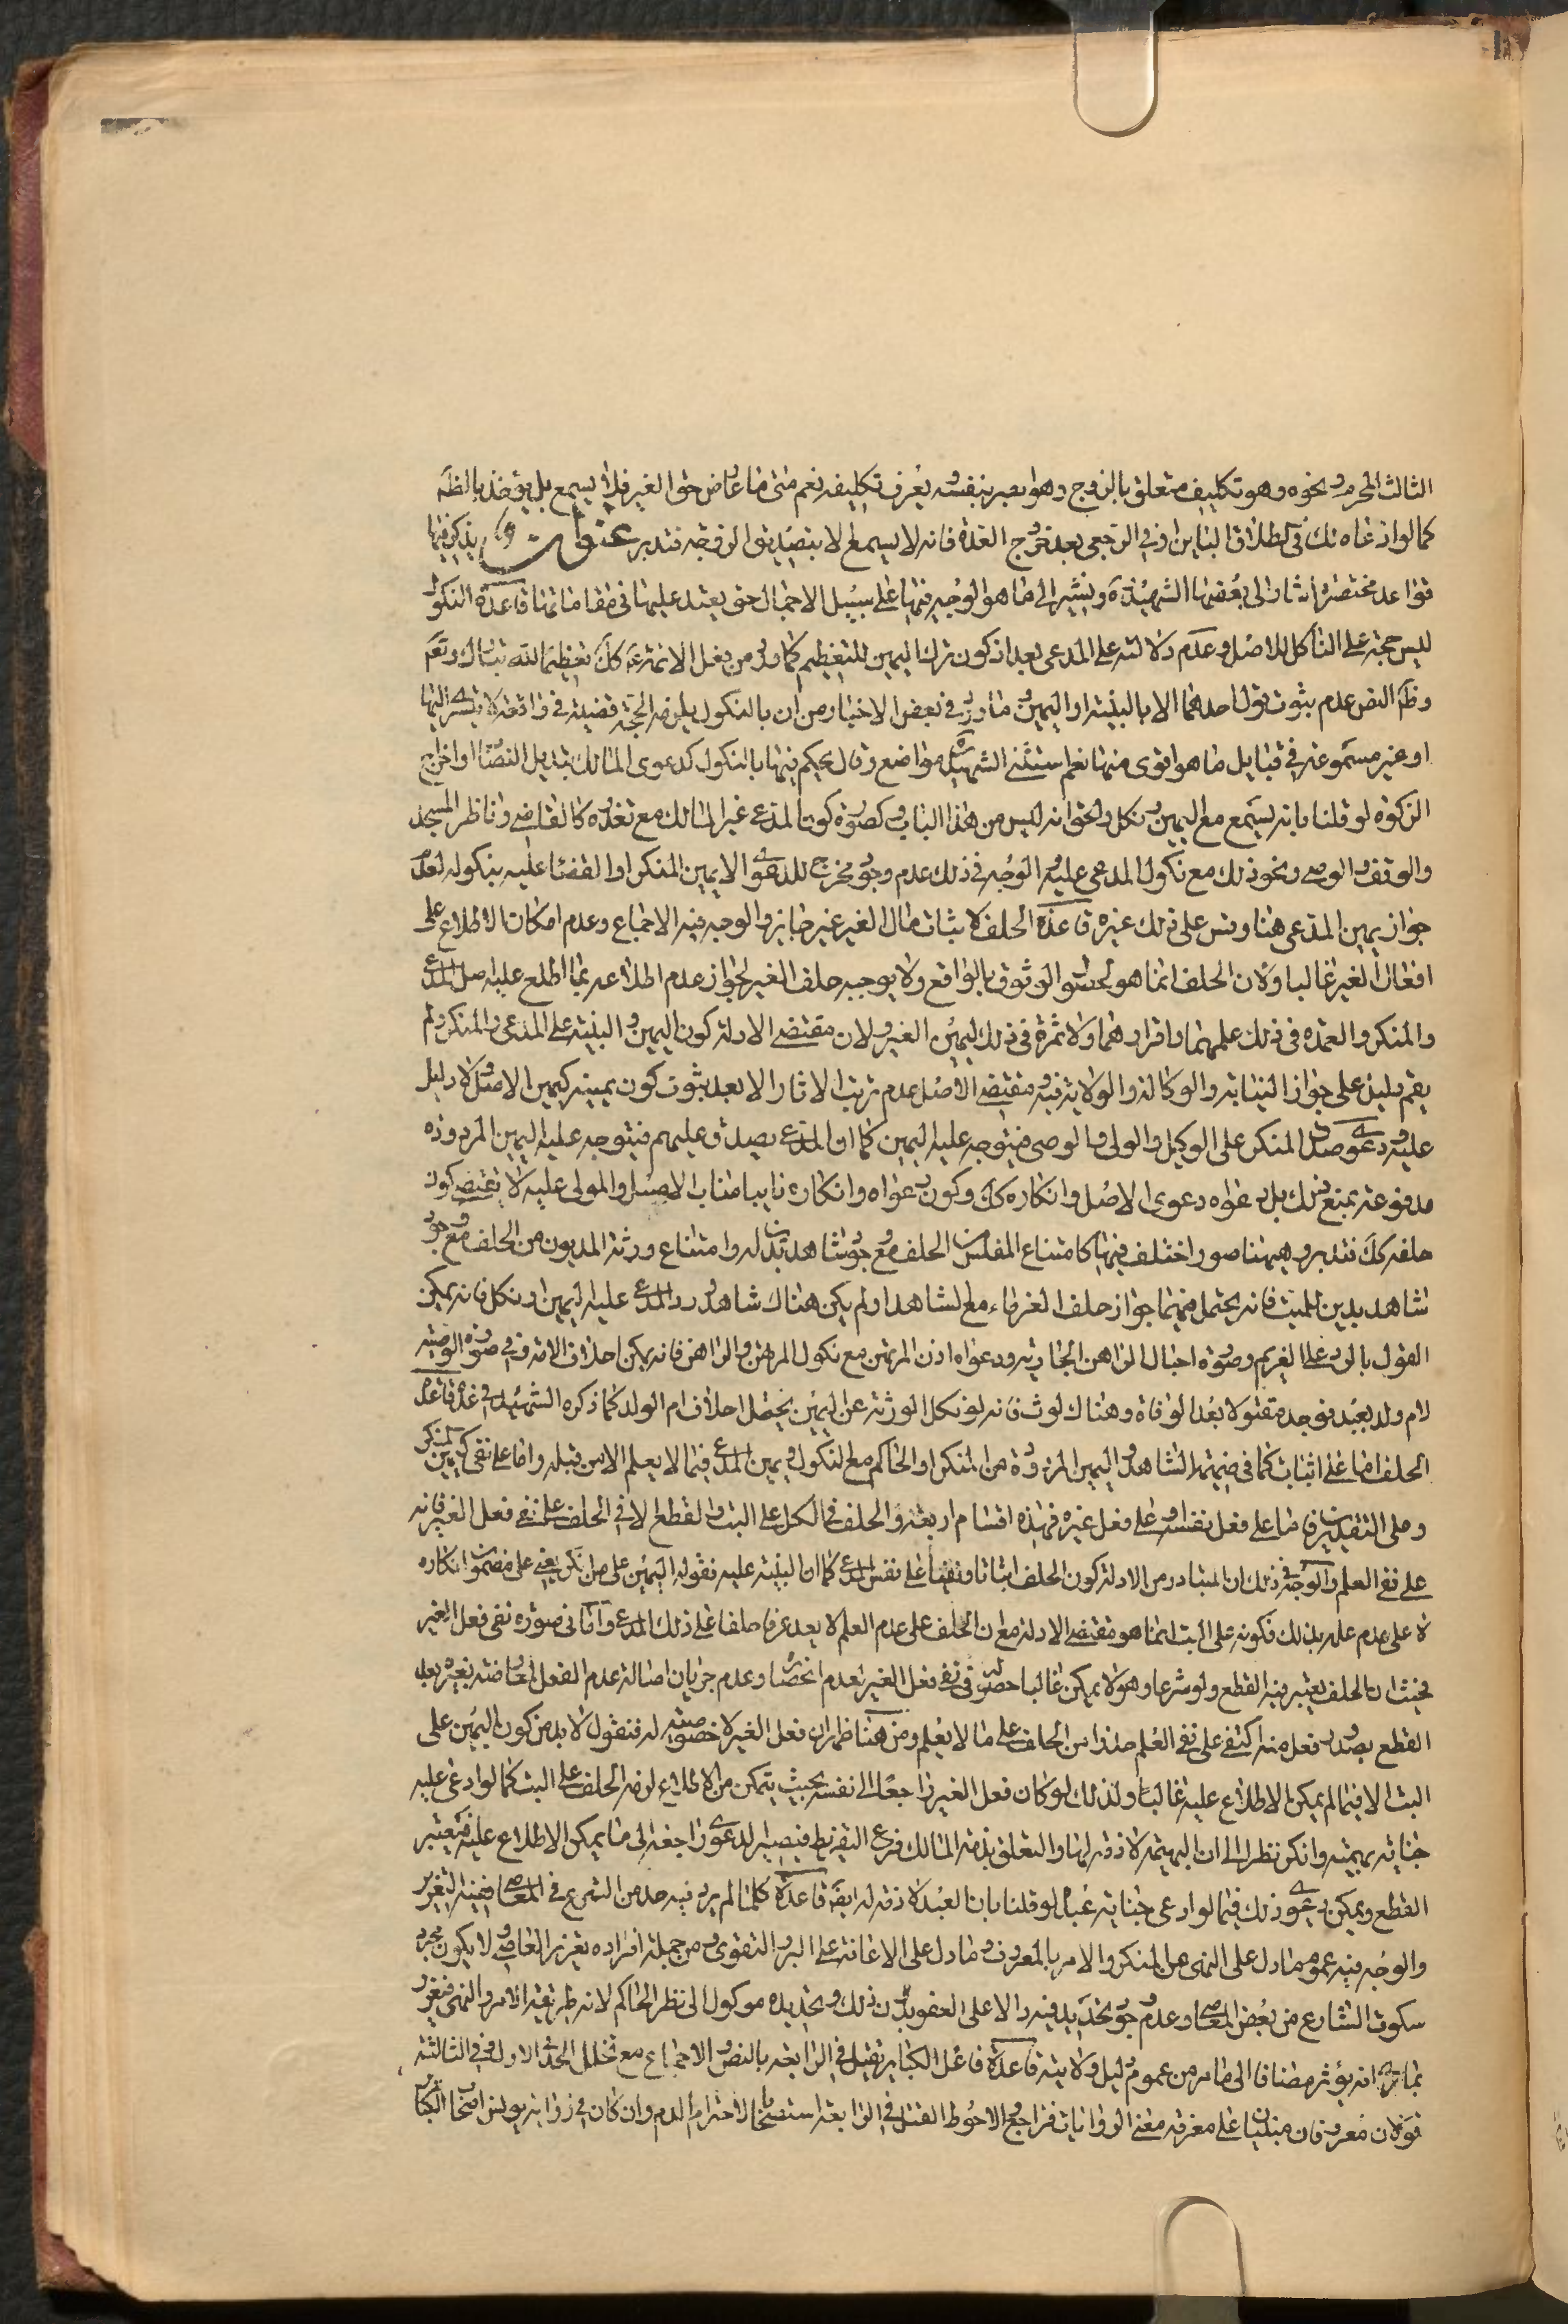 الثالث المحرم ونحوه وهو تكليف متعلق بالزوج وهو بصير بنفسه يعرف تكليفه نعم متى ما عارض حق الغير فلا يسمع بل يؤخذ بالظه
كما لو ادعاه تلك فى الطلاق الباين او فى الرجعى بعد خروج العدة فانه لا يسمع الا بتصديق الزوجة فتدبر عنوان يذكر فيها
قواعد مختصرة اشار الى بعضها الشهيد ره ونشير الى ما هو الوجه فيها على سبيل الاجمال حتى يعتمد عليها فى مقاماتها قاعدة النكول
ليس حجة على الناكل للاصل وعدم دلالته على المدعى بعد اذ كون ترك اليمين للتعظيم كما ورد من فعل الائمة ع كك تعظيما لله تبارك وتعم
وظم النص عدم ثبوت قول احدهما الا بالبينة او اليمين وما ورد فى بعض الاخبار من ان بالنكول يلزمه الحجة قضية فى واقعة لا يتسرى اليها
او غير مسموعة فى قبايل ما هو اقوى منها نعم استثنى الشهيد ره مواضع وقال يحكم فيها بالنكول كدعوى المالك تبديل النصاب او اخراج
الزكوة لو قلنا بانه يسمع مع اليمين ونكل والحق انه ليس من هذا الباب وكصورة كون المدعى غير المالك مع تعذره كالقاضى وناظر المسجد
والوقف والوصى ونحو ذلك مع نكول المدعى عليه والوجه فى ذلك عدم وجود مخرج للدعوى الا يمين المنكر او القضاء عليه بنكوله لعدم
جواز يمين المدعى هنا وقس على ذلك غيره قاعدة الحلف لاثبات مال الغير غير جايز والوجه فيه الاجماع وعدم امكان الاطلاع على
افعال الغير غالبا ولان الحلف انما هو لحصول الوثوق بالواقع ولا يوجبه حلف الغير لجواز عدم اطلاعه بما اطلع عليه اصل المدعى
والمنكر والعمدة فى ذلك علمهما واقرارهما ولا ثمرة فى ذلك ليمين الغير ولان مقتضى الادلة كون اليمين والبينة على المدعى والمنكر ولم
يقم دليل على جواز النيابة والوكالة والولاية فيه ومقتضى الاصل عدم ترتب الاثار الا بعد ثبوت كون يمينه كيمين الاصل ولا دليل
عليه ودعوى صدق المنكر على الوكيل والولى والوصى فيتوجه عليه اليمين كما ان المدعى يصدق عليهم فيتوجه عليه اليمين المردودة
مدفوعة بمنع ذلك بل دعواه دعوى الاصل وانكاره كك وكون دعواه وانكاره نايبا مناب الاصيل والمولى عليه لا يقتضى كون
حلفه كك فتدبر وهيهنا صور اختلف فيها كامتناع المفلس من الحلف مع وجود شاهد بدين له وامتناع ورثة المديون من الحلف مع وجود
شاهد بدين للميت فانه يحتمل فيهما جواز حلف الغرماء مع الشاهد او لم يكن هناك شاهد ورد المدعى عليه اليمين او نكل فانه يمكن
القول بالرد على الغريم وصورة احبال الراهن الجارية ودعواه اذن المرتهن مع نكول المرتهن والراهن فانه يمكن احلاف الامة وفى صورة الوصية
لام ولد بعبد فوجد مقتولا بعد الوفاة وهناك لوث فانه لو نكل الورثة عن اليمين يحتمل احلاف ام الولد كما ذكره الشهيد ره فى عده قاعدة
الحلف اما على اثبات كما فى ضميمة الشاهد واليمين المردودة من المنكر او الحاكم مع النكول ويمين المدعى فيما لا يعلم الا من قبله واما على نفى كيمين المنكر
وعلى التقديرين فاما على فعل نفسه او على فعل غيره فهذه اقسام اربعة والحلف فى الكل على البت والقطع لا فى الحلف على نفى فعل الغير فانه
على نفى العلم والوجه فى ذلك ان المتبادر من الادلة كون الحلف اثباتا ونفيا على نفس المدعى كما ان البينة عليه فقوله اليمين على من انكر يعنى على مضمون انكاره
لا على عدم علمه بذلك فكونه على البت انما هو مقتضى الادلة مع ان الحلف على عدم العلم لا يعد عرفا حلفا على ذلك المدعى واما فى صورة نفى فعل الغير
فحيث ان الحلف يعتبر فيه القطع ولو شرعا وهو لا يمكن غالبا حصوله فى نفى فعل الغير لعدم انحصاره وعدم جريان اصالة عدم الفعل لمعارضته بغيره بعد
القطع بصدور فعل منه اكتفى على نفى العلم حذرا من الحلف على ما لا يعلم ومن هنا ظهر ان فعل الغير لا خصوصية له فنقول لا بد من كون اليمين على
البت الا فيما لم يمكن الاطلاع عليه غالبا ولذلك لو كان فعل الغير راجعا الى نفسه بحيث يتمكن من الاطلاع لزمه الحلف على البت كما لو ادعى عليه
جناية بهيمته وانكر نظرا الى ان البهيمة لا ذمة لها والتعلق بذمة المالك فرع التفريط فيصير الدعوى راجعة الى ما يمكن الاطلاع عليه فيعتبر
القطع ويمكن دعوى ذلك فيما لو ادعى جناية عبده لو قلنا بان العبد لا ذمة له ايضا قاعدة كلما لم يرد فيه حد من الشرع فى المعاصى ففيه التعزير
والوجه فيه عموم ما دل على النهى عن المنكر والامر بالمعروف وما دل على الاعانة على البر والتقوى ومن جملة افراده تعزير العاصى ولا يكون مجرد
سكوت الشارع من بعض المعاصى وعدم وجود تحديد فيه دالا على العفو بدون ذلك وتحديده موكول الى نظر الحاكم لانه طريقة الامر والنهى فيعزر
بما يراه انه يؤثر مضافا الى ما مر من عموم دليل ولايته قاعدة فاعل الكباير يقتل فى الرابعة بالنص والاجماع مع تخلل الحد فى الاول وفى الثالثة
قولان معروفان مبنيان على معرفة معنى الروايات فراجع والاحوط القتل فى الرابعة استصحابا لاحترام الدم وان كان فى رواية يونس اصحاب الكبائر